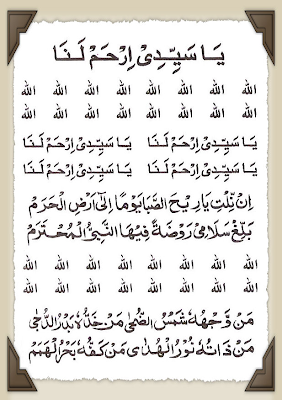 يَا سَيِّدِيْ اِرْحَمْ لَنَا
الله الله الله الله الله الله الله الله
الله الله الله الله الله الله الله الله
يَا سَيِّدِيْ اِرْحَمْ لَنَا يَا سَيِّدِيْ اِرْحَمْ لَنَا
يَا سَيِّدِيْ اِرْحَمْ لَنَا يَا سَيِّدِيْ اِرْحَمْ لَنَا
اِنْ نِلْتِ يَا رِيْحَ الصَّبَا يَوْمًا اِلَى اَرْضِ الْحَرَمْ
بَلِّغْ سَلَامِيْ رَوْضَةً فِيْهَا النَّبِيُّ الْمُحْتَرَمْ
الله الله الله الله الله الله الله الله
الله الله الله الله الله الله الله الله
مَنْ وَجْهُهُ شَمْسُ الضُّحٰى مَنْ خَدُّهُ بَدْرُ الدُّجٰى
مَنْ ذَاتُهُ نُوْرُ الْهُدٰى مَنْ كَفُّهُ بَحْرُ الْهِمَمْ